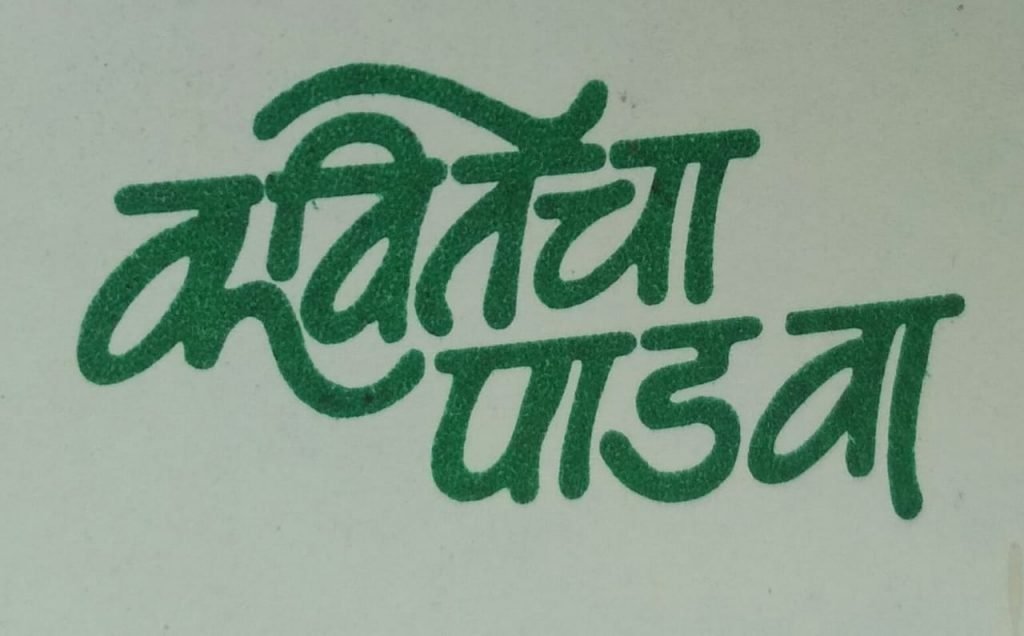 कवितेचा
पाडवा